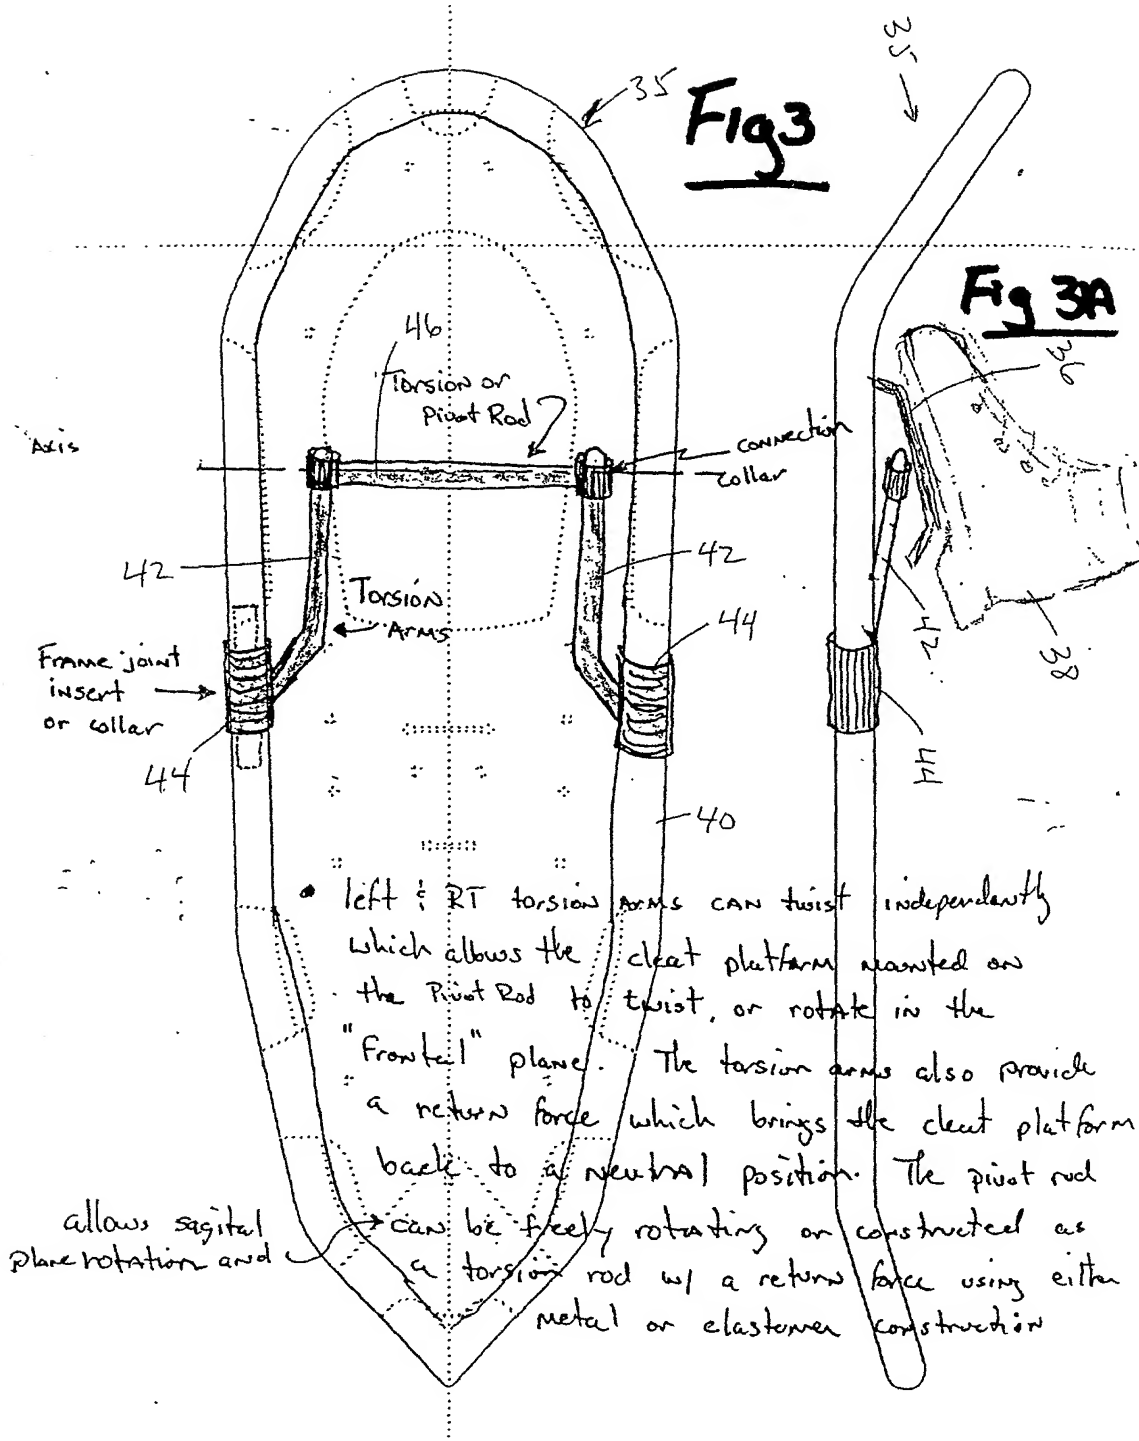 35
Fig3
35
Fig 3A
46
Torsion or
Pivot Rod
36
Axis
connection
collar
42
42
Torsion
Arms
44
42
38
Frame joint
insert
or collar
44
44
40
• left & RT torsion Arms CAN twist independently
which allows the cleat platform mounted on
the Pivot Rod to twist, or rotate in the
"Frontal" plane. The torsion arms also provide
a return force which brings the cleat platform
back to a neutral position. The pivot rod
allows sagital
plane rotation and
can be freely rotating or constructed as
a torsion rod w/ a return force using either
metal or elastomer construction